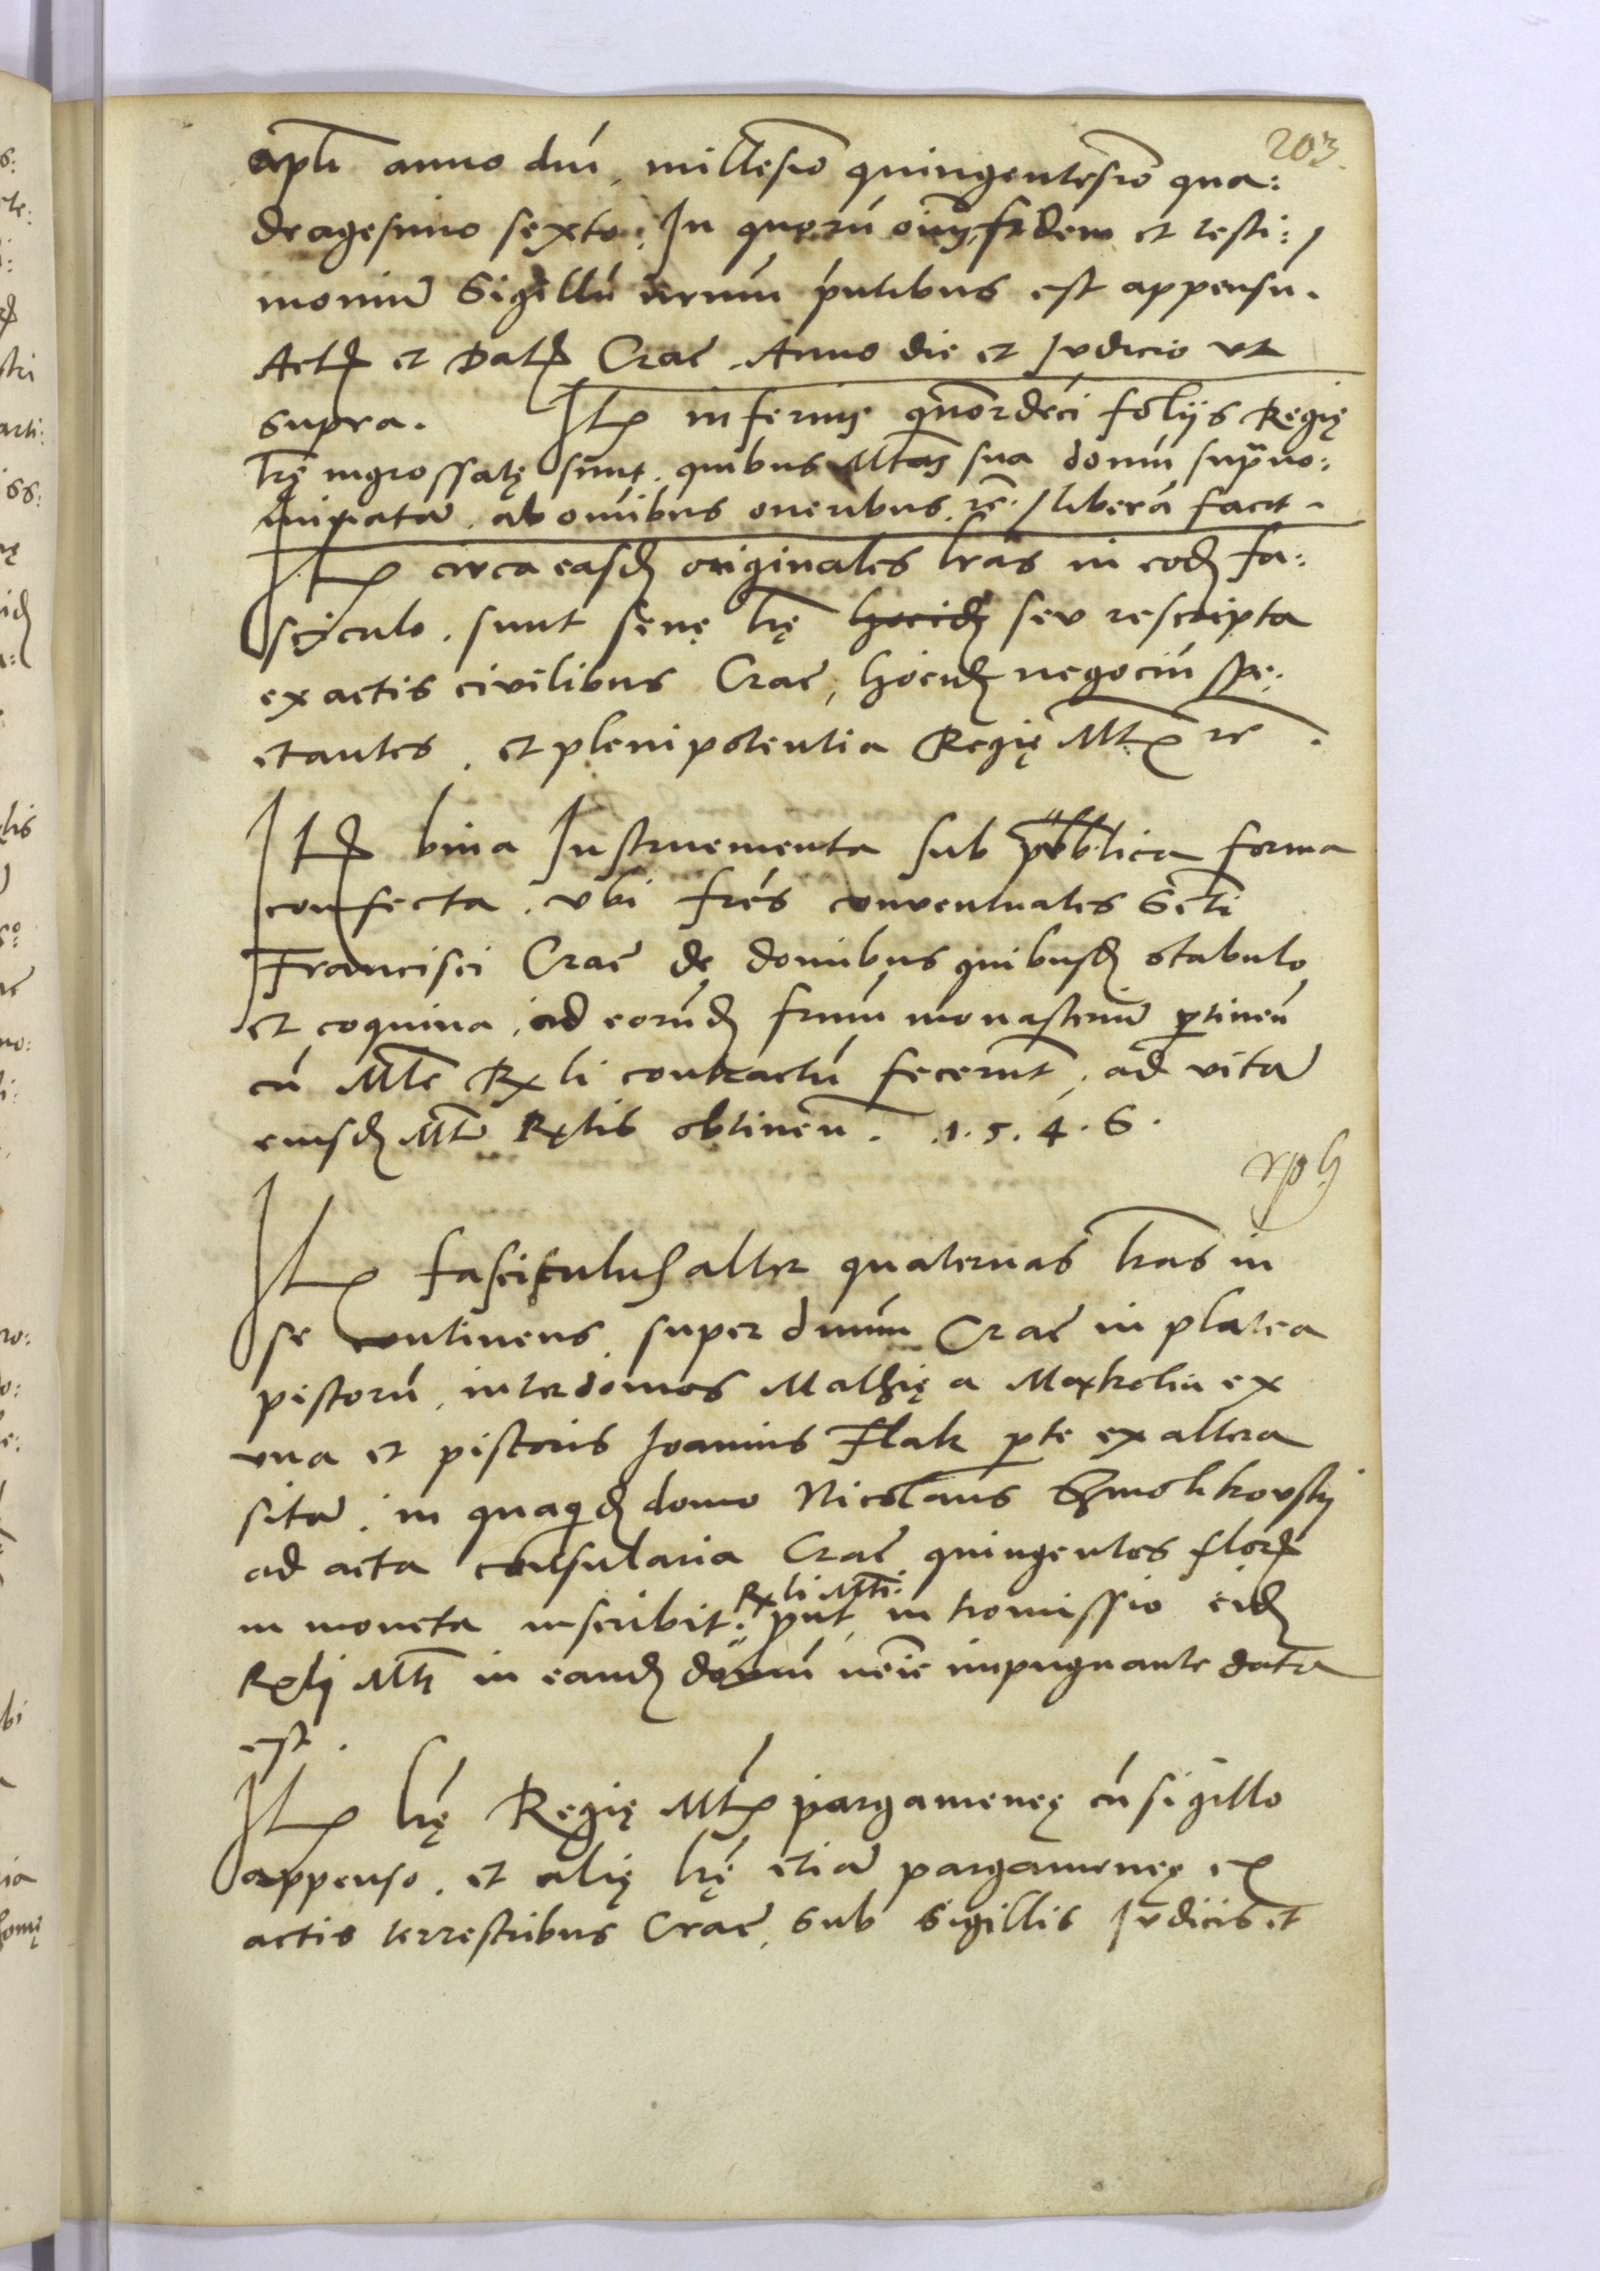 203
apli anno dni, millesimo quingentesimo qua:
dragesimo sexto. In quorū oīm fidem et testi:
moniū Sigillū nrum pntibus est appensū.
Act et Dat Crac. Anno die et Judicio ut
supra. Itē inferius quordeci folijs Regię
lrę ingrossatę sunt. quibus Mtas sua domū supno:
minatam ab omibus oneribus, rc. liberā facit.
Itē circa easdē originales lras in eodē fa:
sciculo. sunt senę lrę seu rescripta
ex actis civilibus Crac, hōcidē negociū spe:
ctantes, et plenipotentia Regię Mtis rc.
Itē bina Instruementa sub publica forma
confecta. ubi frēs conventuales Scti
Francisci Crac de domibus quibusdē stabulo
et coquina, ad eorūdē frum monasteriū ptineñ
cū Mte Rli contractū fecerunt, ad vitā
eiusdē Mtis Rlis obtineñ. .1.5.4.6.
Itē fasciculus alter quaternas lras in
se continens, super dmum Crac in platea
pistorū, inter domos Mathię a ex
una et pistoris Joannis Flak pte ex altera
sitā. in quaqdē domo Nicolaus
ad acta consularia Crac quingentos flor
in moneta inscribit: Rli Mti: put intromissio eidē
Rli Mti in eandē domū neīe impugnante data
est.
Itē lrę Regię Mtis pargameneę cū sigillo
appenso. et alię lrę etiā pargameneę ex
actis terrestribus Crac, sub Sigillis Judicis et